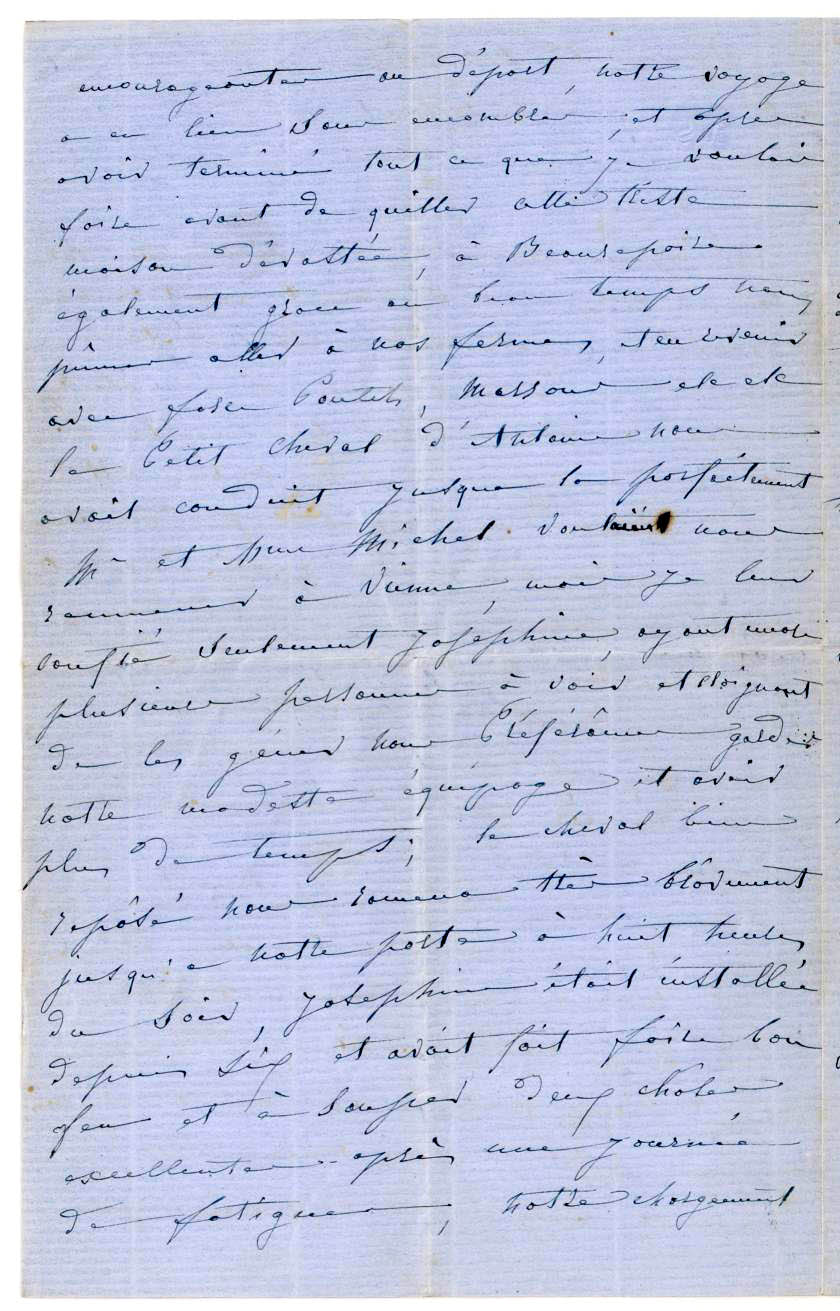 encourageantes au départ, notre voyage
a eu lieu sans encombre, et après
avoir terminé tout ce que je voulais
faire avant de quitter cette triste
maison dévastée, à Beaurepaire
également grace au beau temps nous
pûmes aller à nos fermes, et en revenir
avec force Poulets, marrons etc etc
le Petit cheval d'Antoine nous
avait conduit jusque là parfaitement
Mr et Mme Michel voulaient nous
ramener à Vienne, mais je leur
confié seulement Joséphine, ayant encore
plusieurs personnes à voir et craignant
de les gêner nous Préférâmes garder
notre modeste équipage et avoir
plus de temps; le cheval bien
repôsé nous ramena très brâvement
jusqu'a notre porte à huit heures
du soir, Joséphine était installée
depuis six et avait fait faire bon
feu et à souper deux choses
excellentes après une journée
de fatigues, notre chargement